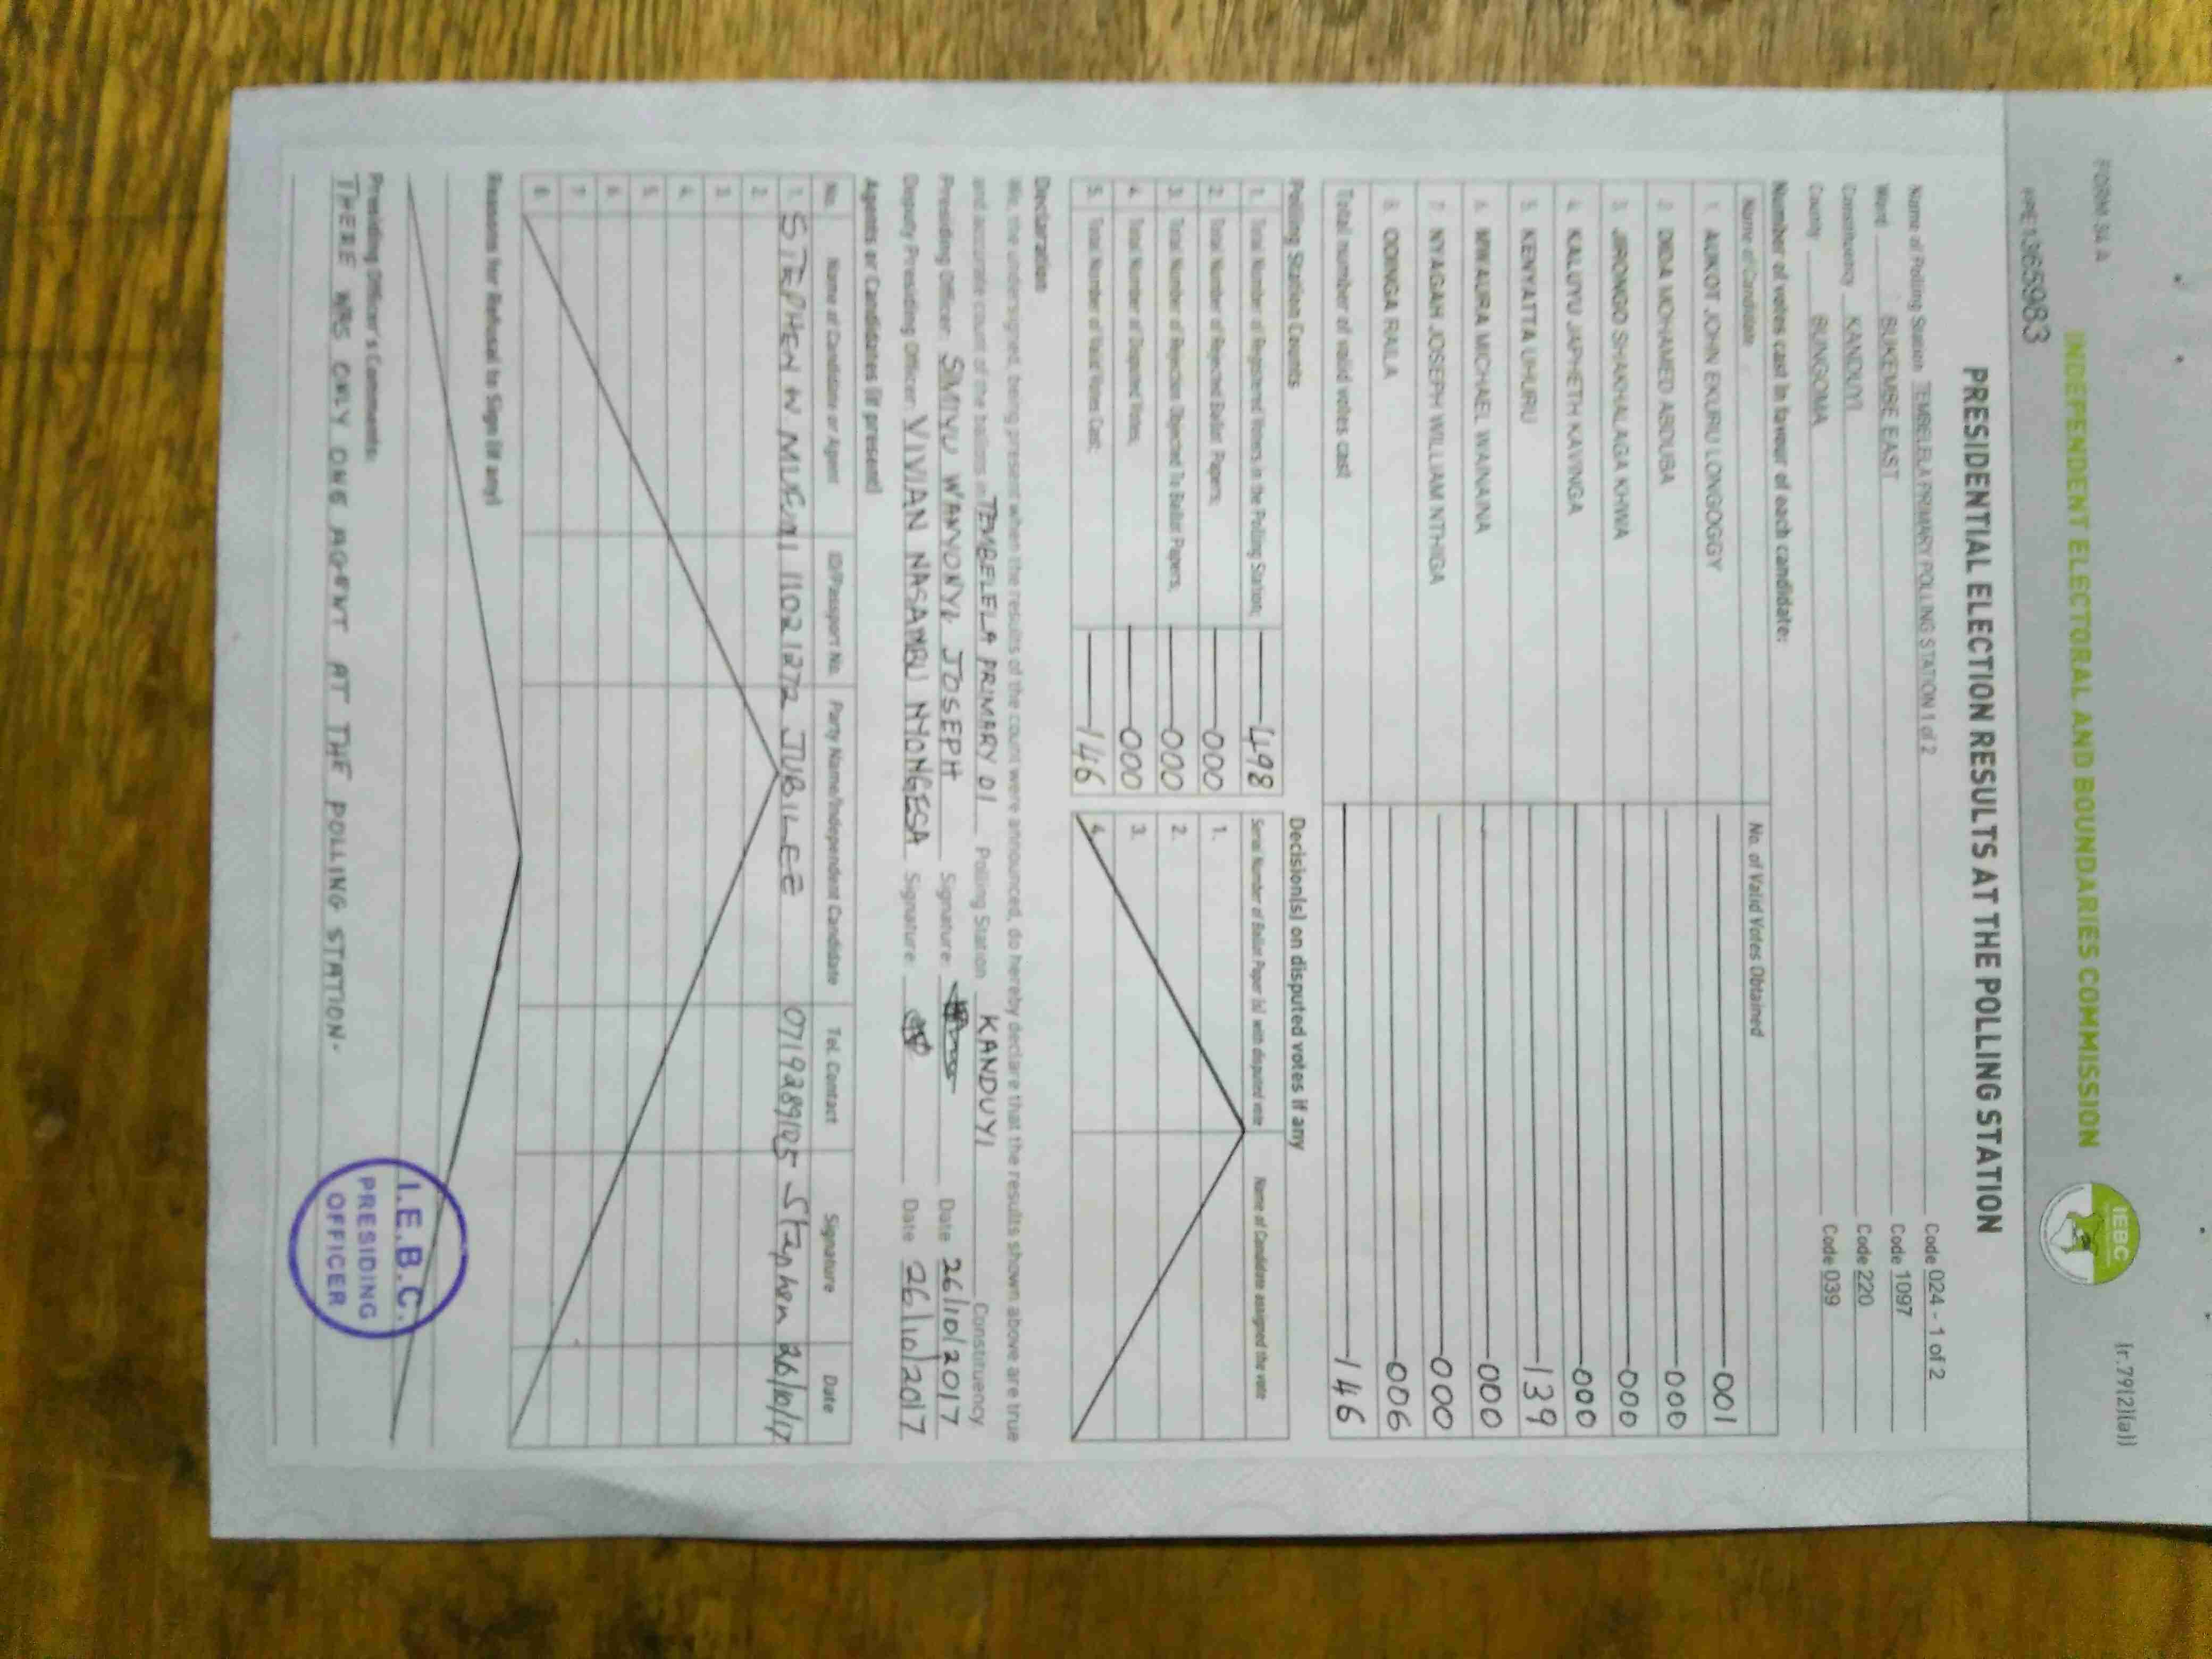 FORM 34 A
(r.79(2)(a))
INDEPENDENT ELECTORAL AND BOUNDARIES COMMISSION
IEBC
PPE1365983
PRESIDENTIAL ELECTION RESULTS AT THE POLLING STATION
Name of Polling Station TEMBELELA PRIMARY POLLING STATION 1 of 2 Code 024 - 1 of 2
Ward BUKEMBE EAST Code 1097
Constituency KANDUYI Code 220
County BUNGOMA Code 039
Number of votes cast in favour of each candidate:
Name of Candidate No. of Valid Votes Obtained
1. AUKOT JOHN EKURU LONGOGGY 001
2. DIDA MOHAMED ABDUBA 000
3. JIRONGO SHAKHALAGA KHWA 000
4. KALUYU JAPHETH KAVINGA 000
5. KENYATTA UHURU 139
6. MWAURA MICHAEL WAINAINA 000
7. NYAGAH JOSEPH WILLIAM NTHIGA 000
8. ODINGA RAILA 006
Total number of valid votes cast 146
Polling Station Counts Decision(s) on disputed votes if any
1. Total Number of Registered Voters in the Polling Station; 498 Serial Number of Ballot Paper (s) with disputed vote Name of Candidate assigned the vote
2. Total Number of Rejected Ballot Papers; 000 1.
3. Total Number of Rejection Objected To Ballot Papers; 000 2.
4. Total Number of Disputed Votes; 000 3.
5. Total Number of Valid Votes Cast; 146 4.
Declaration
We, the undersigned, being present when the results of the count were announced, do hereby declare that the results shown above are true
and accurate count of the ballots in TEMBELELA PRIMARY 01 Polling Station KANDUYI Constituency
Presiding Officer: SMIYU WANYONYI JOSEPH Signature Date 26/10/2017
Deputy Presiding Officer: VIVIAN NASAMBU NYONGESA Signature Date 26/10/2017
Agents or Candidates (if present)
No. Name of Candidate or Agent ID/Passport No. Party Name/Independent Candidate Tel. Contact Signature Date
1. STEPHEN W 11021272 JUBILEE Stephen 26/10/17
2.
3.
4.
5.
6.
7.
8.
Reasons for Refusal to Sign (if any)
Presiding Officer's Comments:
THERE WAS ONLY ONE AGENT AT THE POLLING STATION.
I.E.B.C.
PRESIDING
OFFICER